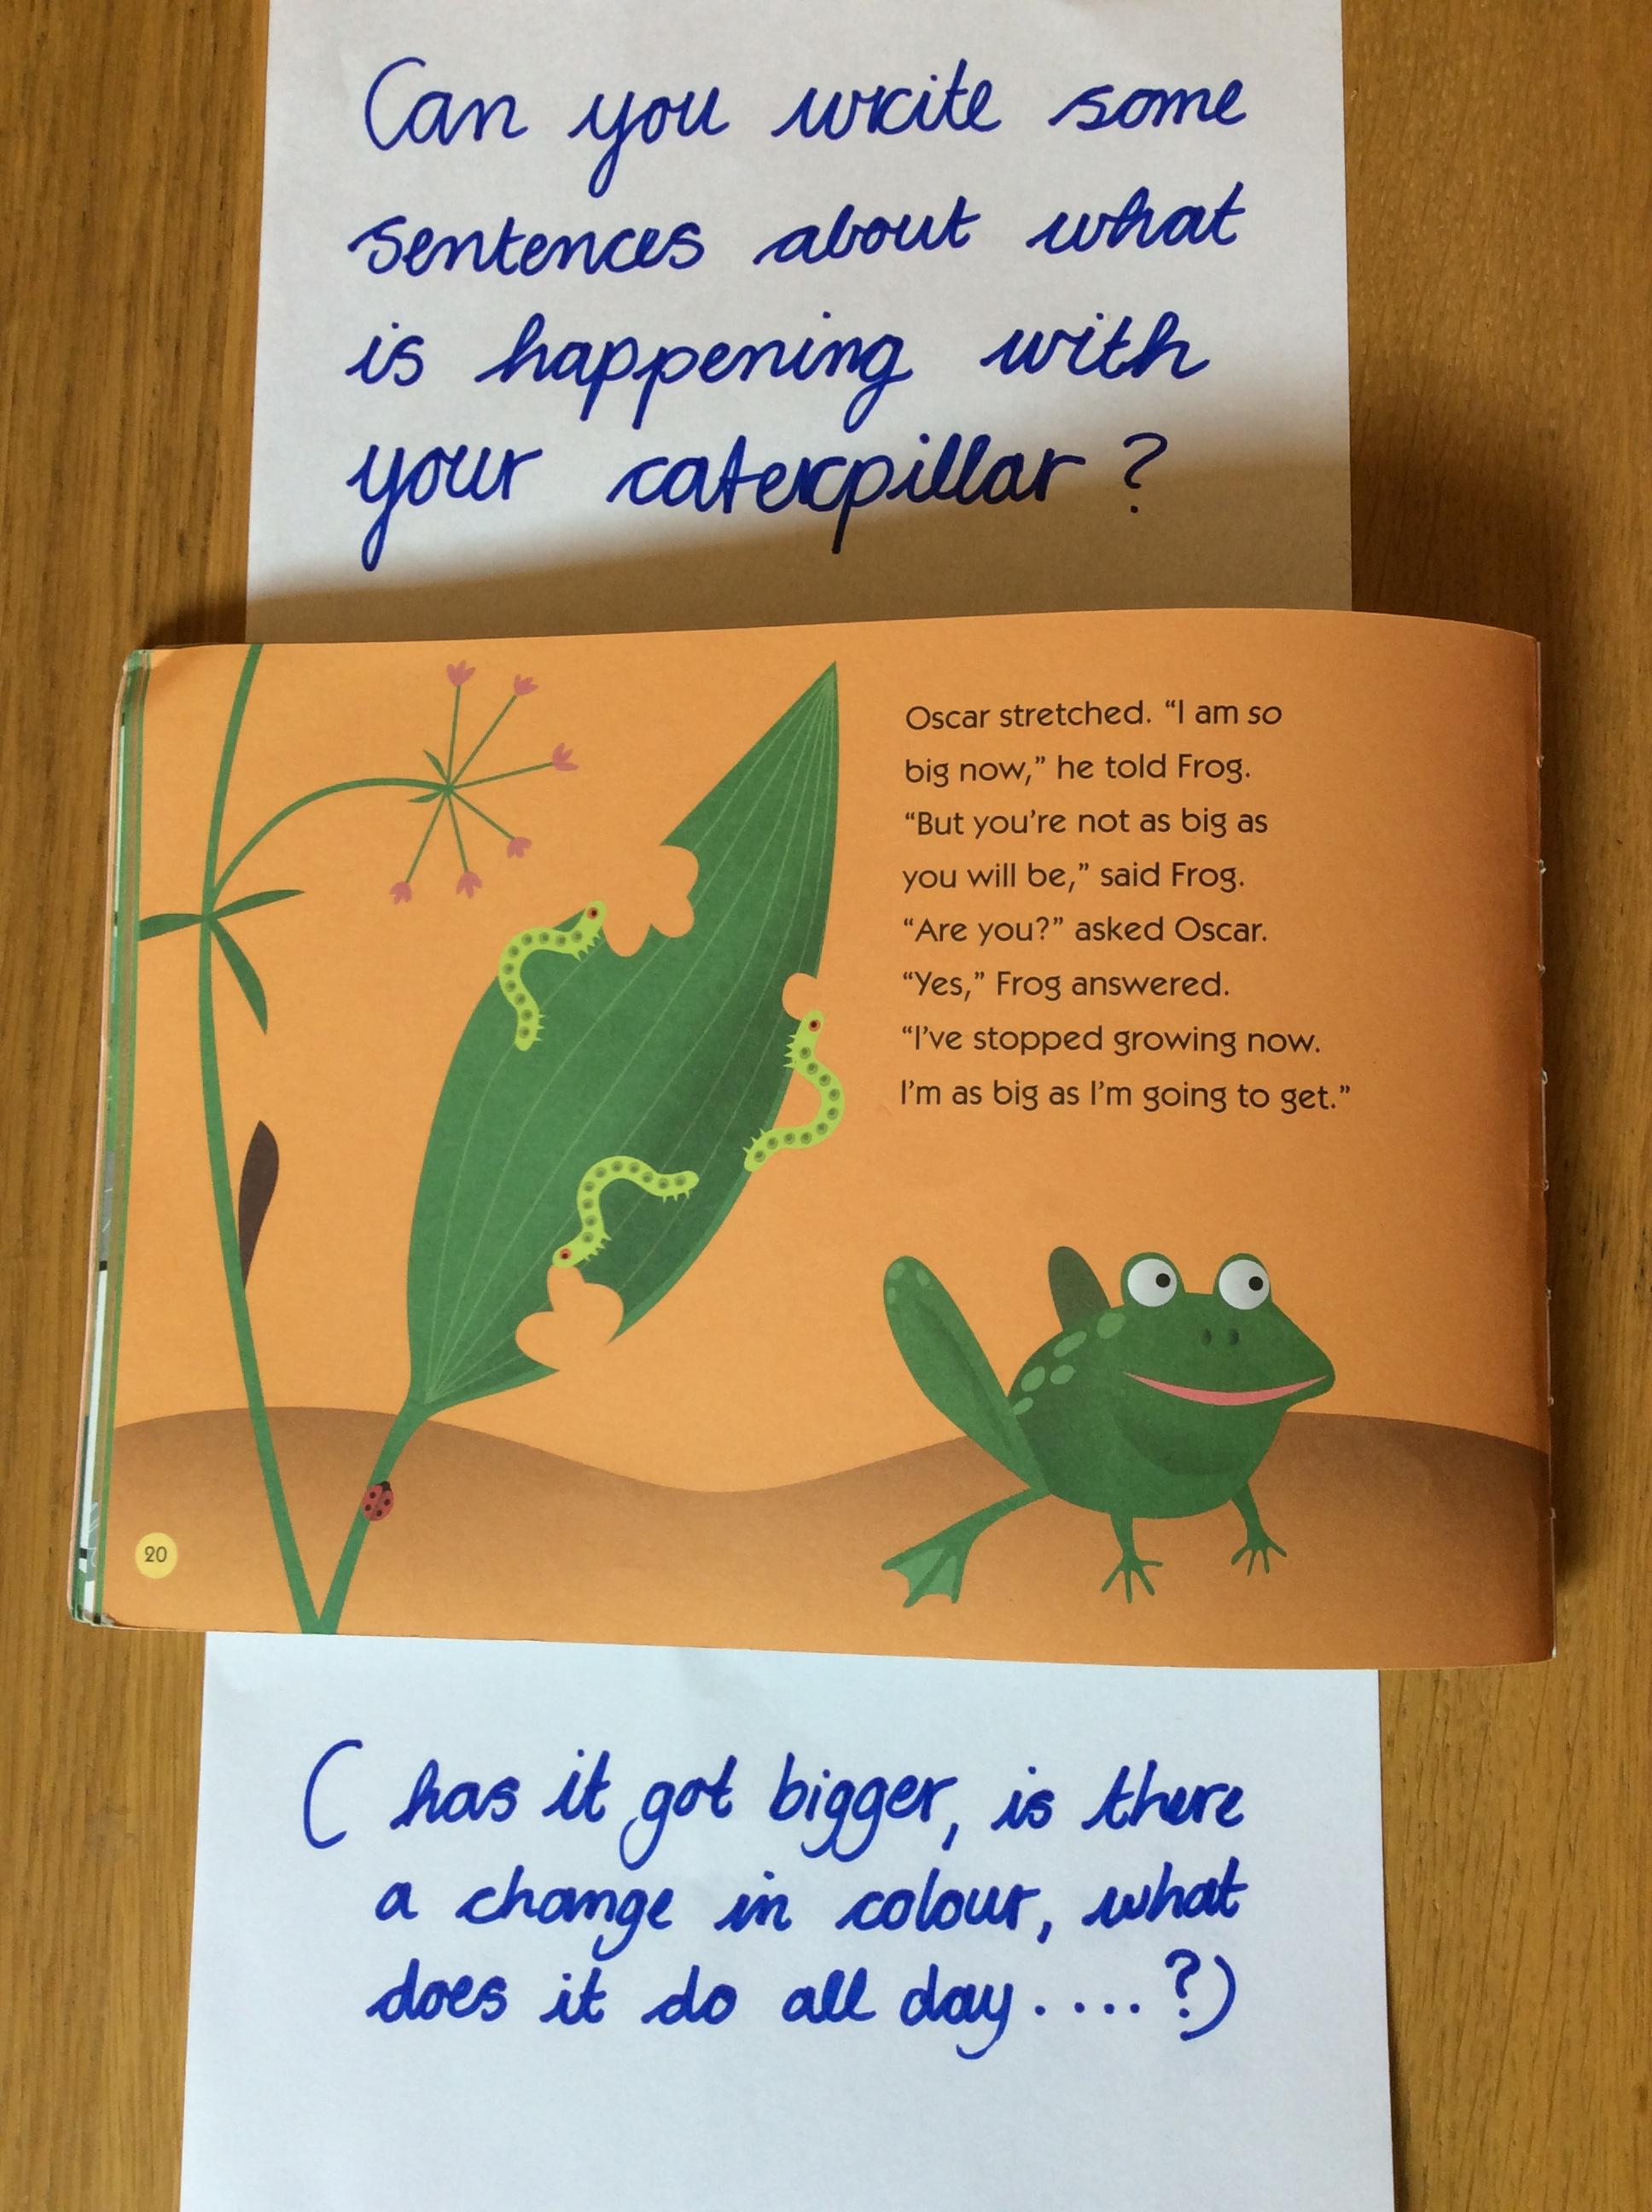 Can you write some
sentences about what
is happening with
your caterpillar?
Oscar stretched. “I am so
big now,” he told Frog.
“But you’re not as big as
you will be,” said Frog.
“Are you?” asked Oscar.
“Yes,” Frog answered.
“I’ve stopped growing now.
I’m as big as I’m going to get.”
20
( has it got bigger, is there
a change in colour, what
does it do all day.....?)